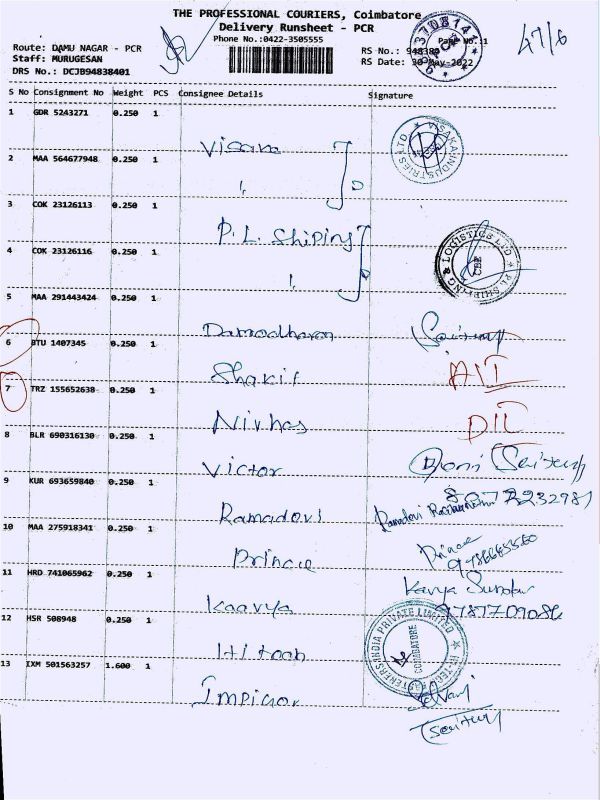 THE PROFESSIONAL COURIERS, Coimbatore
Delivery Runsheet - PCR
Phone No.:0422-3505555
47/6
Route: DAMU NAGAR - PCR
Staff: MURUGESAN
DRS No.: DCJB94838401
RS No.:
RS Date: 30-May-2022
S No Consignment No Weight PCS Consignee Details Signature
1 GDR 5243271 0.250 1
Visaka
2 MAA 564677948 0.250 1
3 COK 23126113 0.250 1
P.L. Shiping
4 COK 23126116 0.250 1
5 MAA 291443424 0.250 1
Damodharan
6 BTU 1407345 0.250 1
Shakil
7 TRZ 155652638 0.250 1
Nivhas
8 BLR 690316130 0.250 1
Victor
9 KUR 693659840 0.250 1
Ramadevi
10 MAA 275918341 0.250 1
Prince
Prince
11 HRD 741065962 0.250 1
Kaavya
Kavya Sundar
9787709086
12 HSR 508948 0.250 1
13 IXM 501563257 1.600 1
VISAKA INDUSTRIES LTD
PL SHIPPING & LOGISTICS LTD
CBE
PRIVATE LIMITED
COIMBATORE